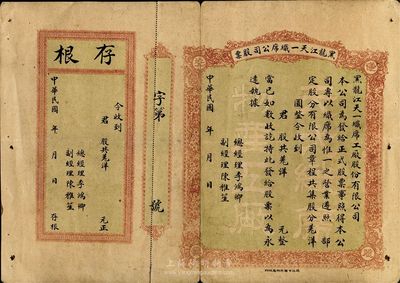 黑龍江天一織席公司股票
黑龍江天一織席工廠股份有限公司
本公司為發給正式股票事照得本公
司專以織席為惟一之營業遵照部
定股份有限公司章程共集股分羌洋
圓整今收到
君 股共羌洋 元整
當已如數收訖持此發給股票以為永
遠執據
總經理李鴻卿
副經理陳雅笙
中華民國 年 月 日
字第 號
存根
今收到
君 股共羌洋 元正
總經理李鴻卿
副經理陳雅笙
中華民國 年 月 日 存根